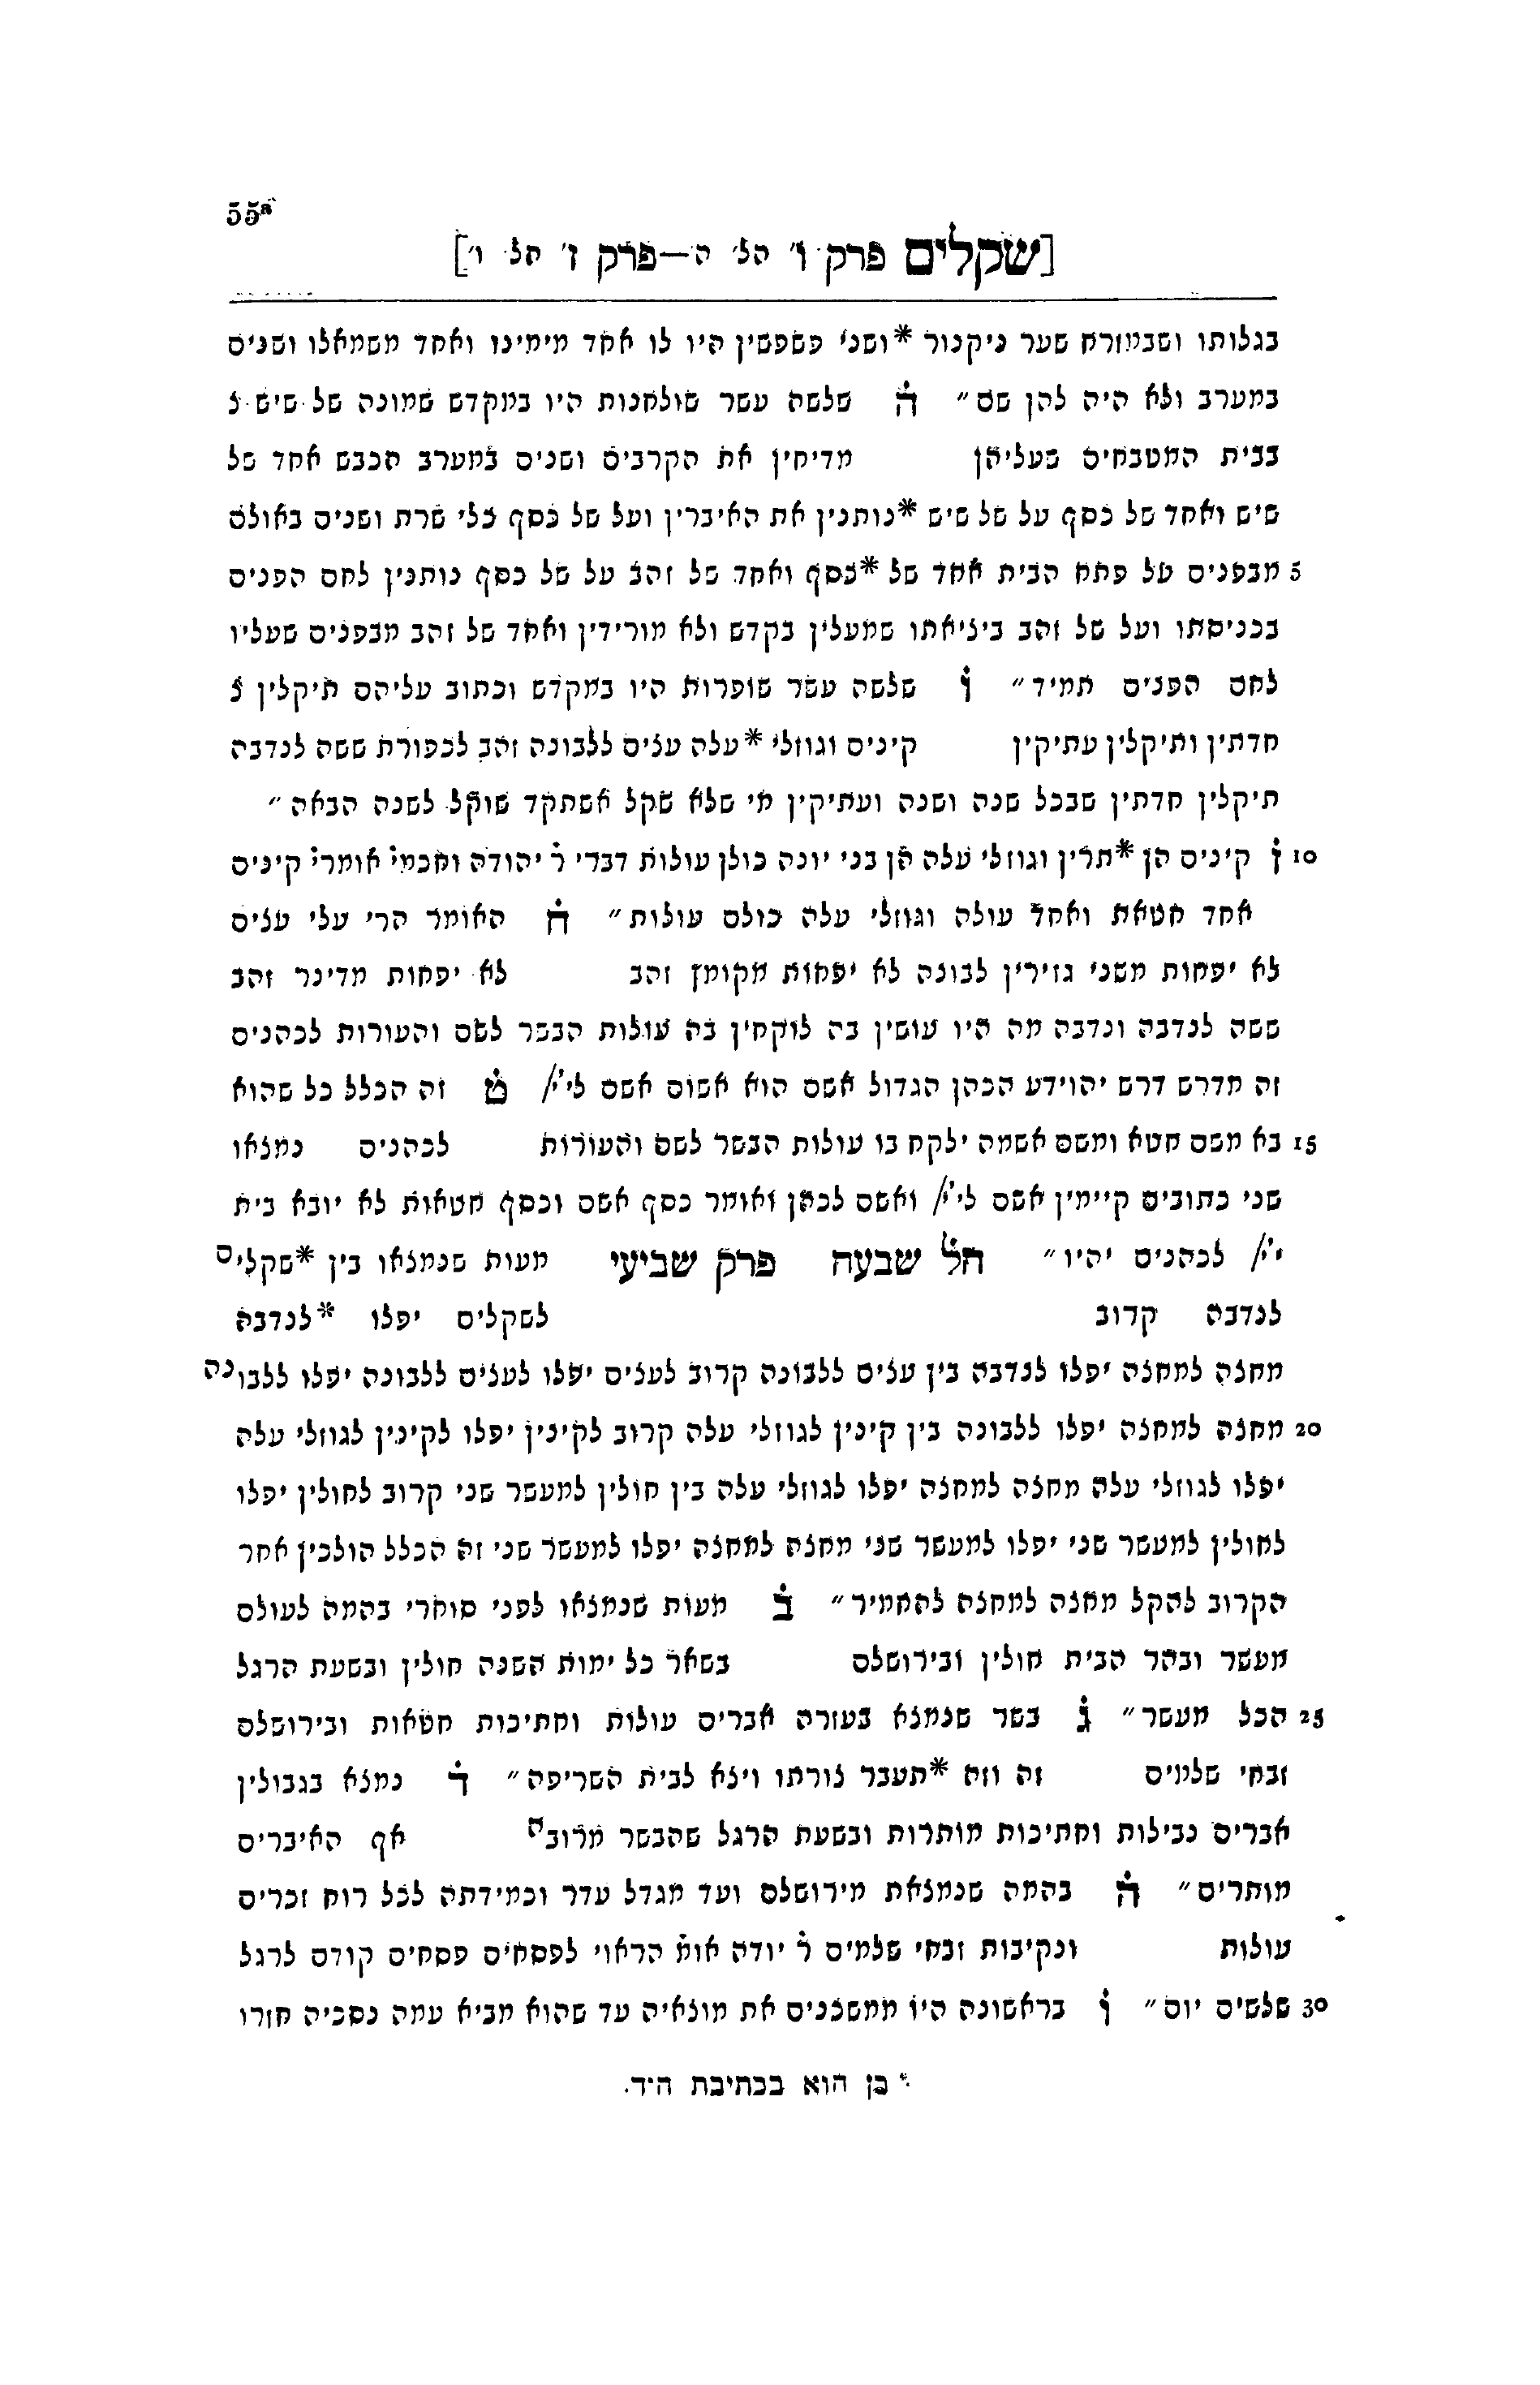 55a
[שקלים פרק ו' הל' ה—פרק ז' הל' ו']
בגלותו ושבמזרח שער ניקנור *ושני פשפשין היו לו אחד מימינו ואחד משמאלו ושנים
במערב ולא היה להן שם״ ה שלשה עשר שולחנות היו במקדש שמונה של שיש צ
בבית המטבחים שעליהן מדיחין את הקרבים ושנים במערב הכבש אחד של
שיש ואחד של כסף על של שיש *נותנין את האיברין ועל של כסף כלי שרת ושנים באולם
5 מבפנים על פתח הבית אחד של *כסף ואחד של זהב על של כסף נותנין לחם הפנים
בכניסתו ועל של זהב ביציאתו שמעלין בקדש ולא מורידין ואחד של זהב מבפנים שעליו
לחם הפנים תמיד״ ו שלשה עשר שופרות היו במקדש וכתוב עליהם תיקלין צ
חדתין ותיקלין עתיקין קינים וגוזלי *עלה עצים ללבונה זהב לכפורת ששה לנדבה
תיקלין חדתין שבכל שנה ושנה ועתיקין מי שלא שקל אשתקד שוקל לשנה הבאה״
10 ז קינים הן *תרין וגוזלי עלה הן בני יונה כולן עולות דברי ר יהודה וחכמי אומרי קינים
אחד חטאת ואחד עולה וגוזלי עלה כולם עולות״ ח האומר הרי עלי עצים
לא יפחות משני גזירין לבונה לא יפחות מקומץ זהב לא יפחות מדינר זהב
ששה לנדבה ונדבה מה היו עושין בה לוקחין בה עולות הבשר לשם והעורות לכהנים
זה מדרש דרש יהוידע הכהן הגדול אשם הוא אשום אשם לי'י/ ט זה הכלל כל שהוא
15 בא משם חטא ומשם אשמה ילקח בו עולות הבשר לשם והעורות לכהנים נמצאו
שני כתובים קיימין אשם לי'י/ ואשם לכהן ואומר כסף אשם וכסף חטאות לא יובא בית
י'י/ לכהנים יהיו״ הל שבעה פרק שביעי מעות שנמצאו בין *שקלים
לנדבה קרוב לשקלים יפלו *לנדבה
מחצה למחצה יפלו לנדבה בין עצים ללבונה קרוב לעצים יפלו לעצים ללבונה יפלו ללבונה
20 מחצה למחצה יפלו ללבונה בין קינין לגוזלי עלה קרוב לקינין יפלו לקינין לגוזלי עלה
יפלו לגוזלי עלה מחצה למחצה יפלו לגוזלי עלה בין חולין למעשר שני קרוב לחולין יפלו
לחולין למעשר שני יפלו למעשר שני מחצה למחצה יפלו למעשר שני זה הכלל הולכין אחר
הקרוב להקל מחצה למחצה להחמיר״ ב מעות שנמצאו לפני סוחרי בהמה לעולם
מעשר ובהר הבית חולין ובירושלם בשאר כל ימות השנה חולין ובשעת הרגל
25 הכל מעשר״ ג בשר שנמצא בעזרה אברים עולות וחתיכות חטאות ובירושלם
זבחי שלמים זה וזה *תעבר צורתו ויצא לבית השריפה״ ד נמצא בגבולין
אברים נבילות וחתיכות מותרות ובשעת הרגל שהבשר מרובה אף האיברים
מותרים״ ה בהמה שנמצאת מירושלם ועד מגדל עדר וכמידתה לכל רוח זכרים
עולות ונקיבות זבחי שלמים ר יודה אומ הראוי לפסחים פסחים קודם לרגל
30 שלשים יום״ ו בראשונה היו ממשכנים את מוצאיה עד שהוא מביא עמה נסכיה חזרו
* כן הוא בכתיבת ה״ד.